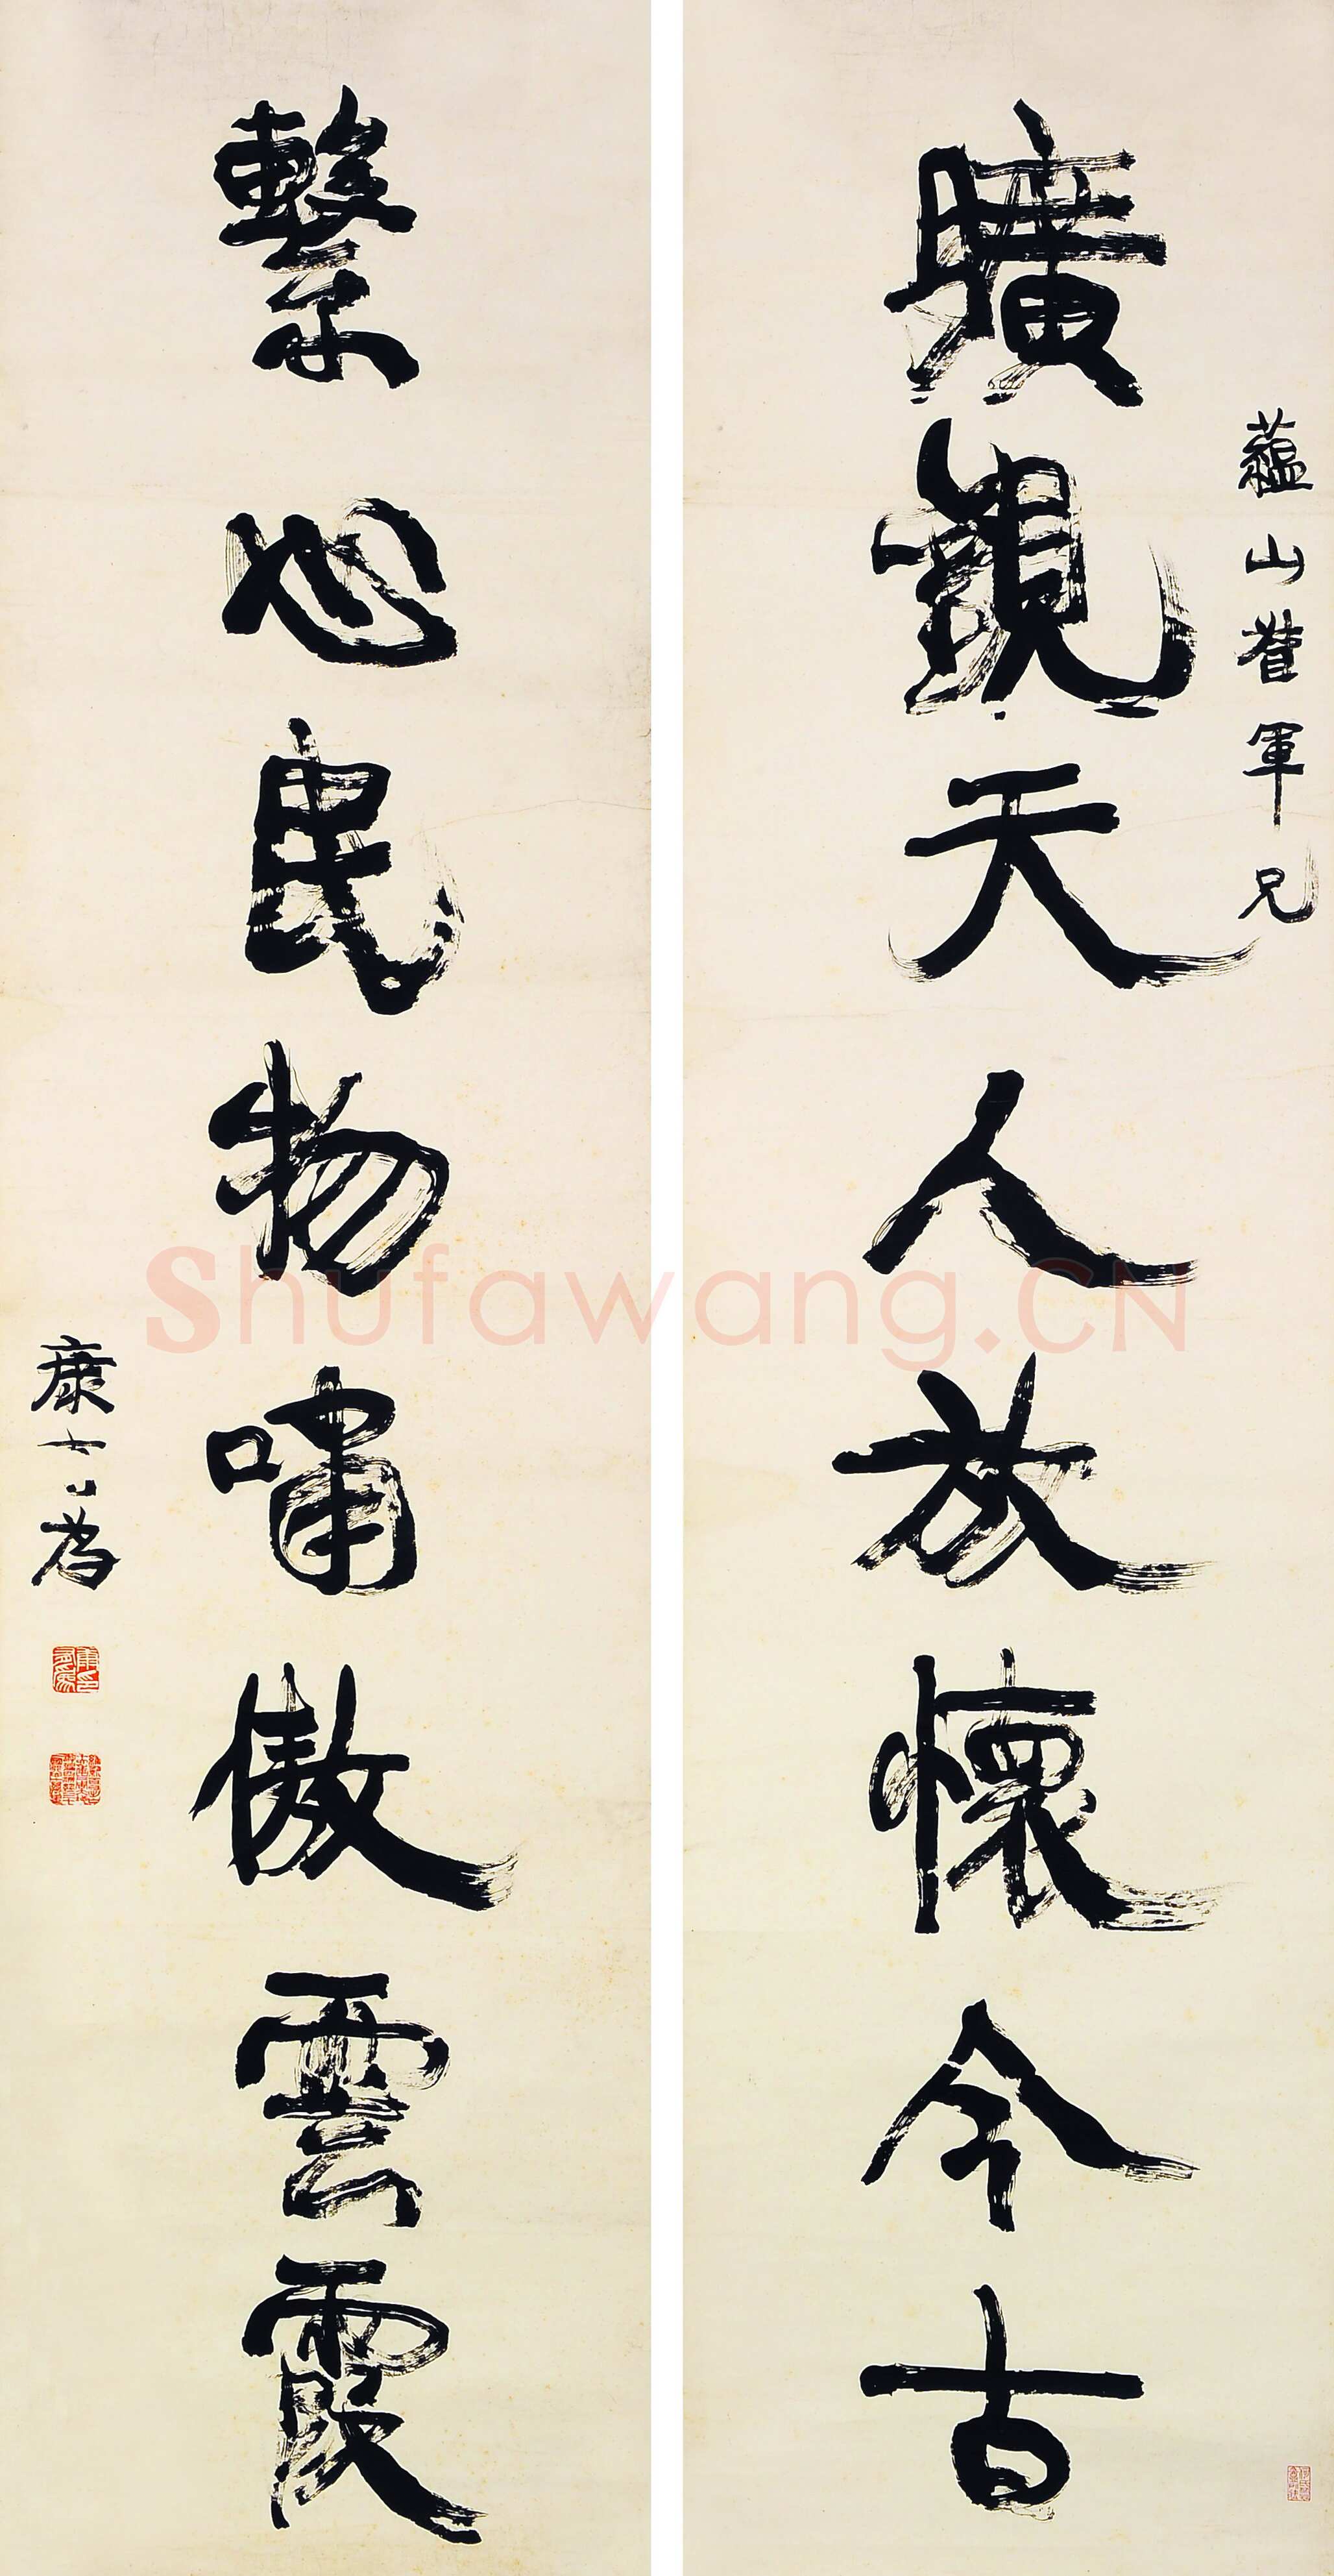 蘊山督軍兄
曠觀天人放懷今古
繫心民物嘯傲雲霞
康有爲
Shufawang.CN
康有爲印